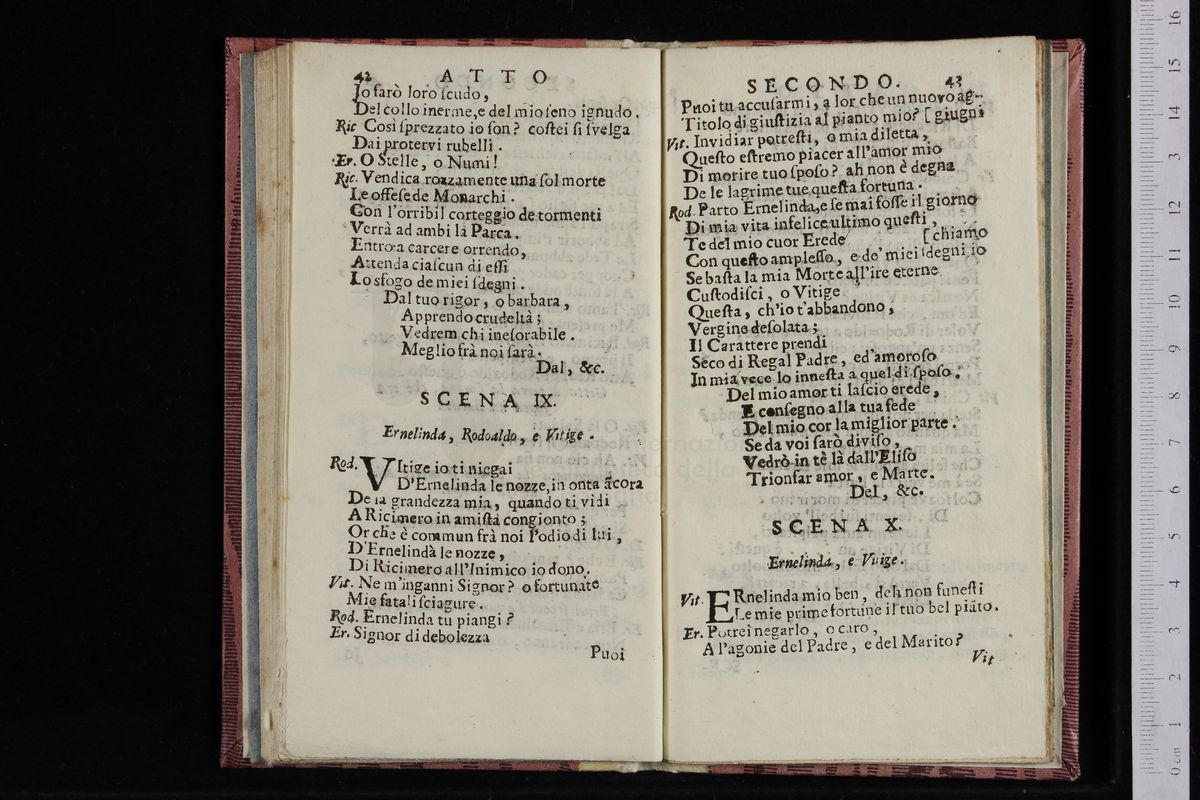 42 ATTO
Io sarò loro scudo,
Del collo inerme, e del mio seno ignudo.
Ric Così sprezzato io son? costei si svelga
Dai protervi rubelli.
Er. O Stelle, o Numi!
Ric. Vendica rozzamente una sol morte
Le offese de Monarchi.
Con l'orribil corteggio de tormenti
Verrà ad ambi la Parca.
Entro a carcere orrendo,
Attenda ciascun di essi
Lo sfogo de miei sdegni.
Dal tuo rigor, o barbara,
Apprendo crudeltà;
Vedrem chi inesorabile.
Meglio frà noi sarà.
Dal, &c.
SCENA IX.
Ernelinda, Rodoaldo, e Vitige.
Rod. VItige io ti niegai
D'Ernelinda le nozze, in onta ãcora
De la grandezza mia, quando ti vidi
A Ricimero in amistà congionto;
Or che è commun frà noi l'odio di lui,
D'Ernelinda le nozze,
Di Ricimero all'Inimico io dono.
Vit. Ne m'inganni Signor? o fortunate
Mie fatali sciagure.
Rod. Ernelinda tu piangi?
Er. Signor di debolezza
Puoi
SECONDO. 43
Puoi tu accusarmi, a lor che un nuovo ag-
Titolo di giustizia al pianto mio? [giugni
Vit. Invidiar potresti, o mia diletta,
Questo estremo piacer all'amor mio
Di morire tuo sposo? ah non è degna
De le lagrime tue questa fortuna.
Rod. Parto Ernelinda, e se mai fosse il giorno
Di mia vita infelice ultimo questi,
Te del mio cuor Erede [chiamo
Con questo amplesso, e de' miei sdegni io
Se basta la mia Morte all'ire eterne
Custodisci, o Vitige
Questa, ch'io t'abbandono,
Vergine desolata;
Il Carattere prendi
Seco di Regal Padre, ed'amoroso
In mia vece lo innesta a quel di sposo.
Del mio amor ti lascio erede,
E consegno alla tua fede
Del mio cor la miglior parte.
Se da voi sarò diviso,
Vedrò in tè là dall'Eliso
Trionfar amor, e Marte.
Del, &c.
SCENA X.
Ernelinda, e Vitige.
Vit. ERnelinda mio ben, deh non funesti
Le mie prime fortune il tuo bel piãto.
Er. Potrei negarlo, o caro,
A l'agonie del Padre, e del Marito?
Vit